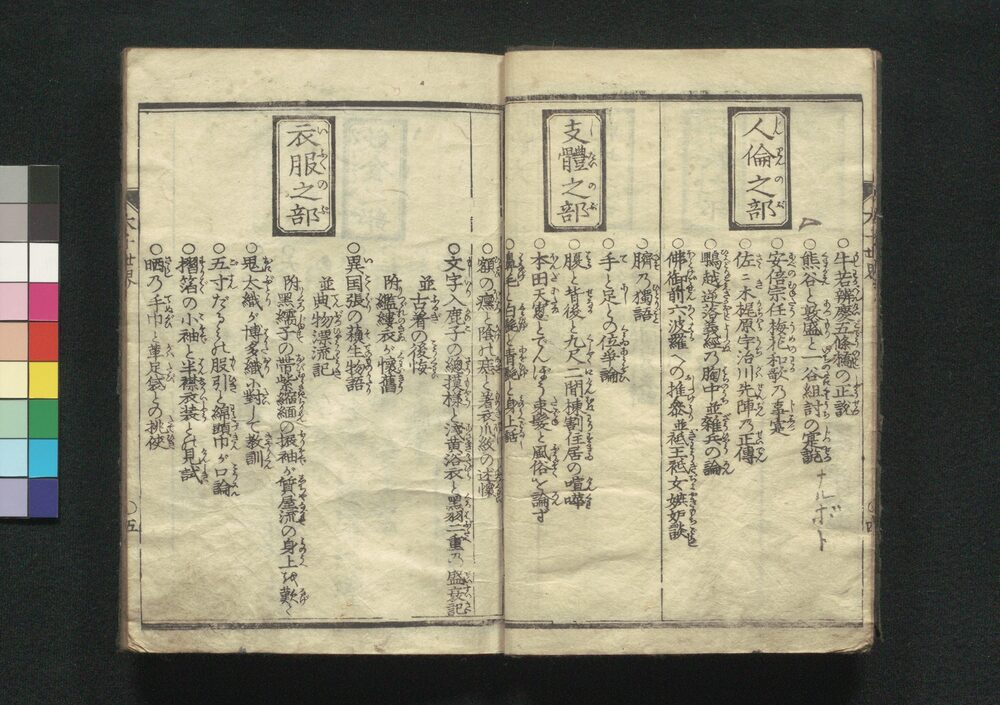 人倫之部
○牛若辨慶五條橋の正說
○熊谷と敦盛と一谷組討の寔說
ナルボト
○安倍宗任梅花和歌乃事寔
○佐々木梶原宇治川先陣乃正傳
○鵯越逆落義經乃胸中並雑兵の論
○佛御前六波羅への推参並祗王祗女嫉妬談
支體之部
○臍乃獨語
○手と足との位爭論
○腹と背後と九尺二間棟割住居の喧嘩
○本田天窓とでんぼう東髪と風俗を論ず
○鼻毛と白髪と青髭と身上話
○額の
衣服之部
○文字入鹿子の総摸様と浅黄浴衣と黒羽二重乃盛衰記
並古着の後悔
附襤褸衣が懐舊
○異国張の殞生物語
並曲物漂流記
附黒繻子の帯紫縮緬の振袖が質屋流の身上を歎く
○鬼太織が博多織に對して教訓
○五寸だるみの股引と綿頭巾が口論
○摺箔の小袖と半襟衣装との見試
○晒乃手巾と革足袋との挑侠
水中世界
○五